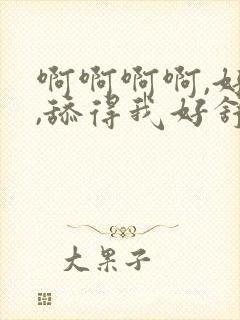 啊啊啊啊,好
,舔得我好舒
大果子